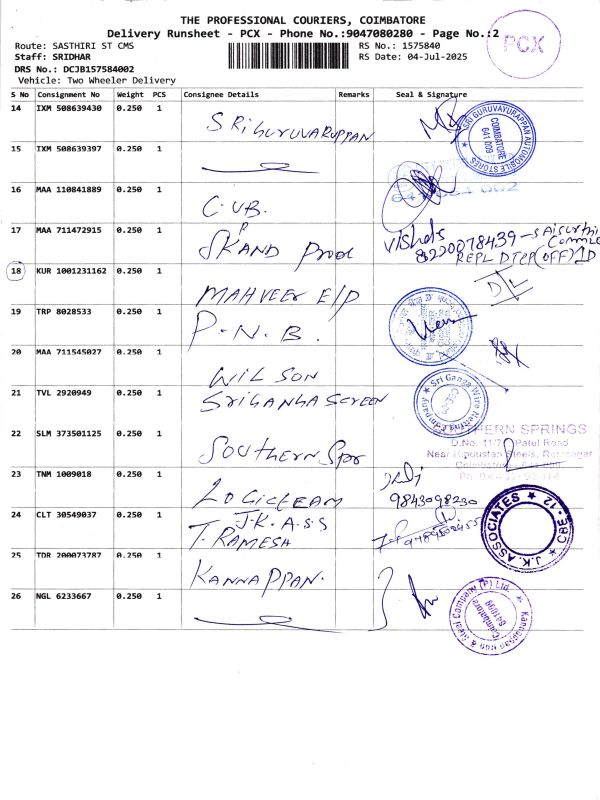 THE PROFESSIONAL COURIERS, COIMBATORE
Delivery Runsheet - PCX - Phone No.:9047080280 - Page No.:2
PCX
Route: SASTHIRI ST CMS
RS No.: 1575840
Staff: SRIDHAR
RS Date: 04-Jul-2025
DRS No.: DCJB157584002
Vehicle: Two Wheeler Delivery
S No Consignment No Weight PCS Consignee Details Remarks Seal & Signature
14 IXM 508639430 0.250 1
SRIGURUVARUPPAN
SRI GURUVAYURAPPAN AUTOMOBILE STORES
COIMBATORE
641 009
15 IXM 508639397 0.250 1
16 MAA 110841889 0.250 1
C.UB.
17 MAA 711472915 0.250 1
SKAND Prod
Vishals
8220078439
REPL DTCP (OFF) ID
18 KUR 1001231162 0.250 1
MAHVEER E/P
D/L
19 TRP 8028533 0.250 1
P.N.B.
20 MAA 711545027 0.250 1
WILSON
21 TVL 2920949 0.250 1
SRIGANGA SCREEN
Sri Ganga Wire Netting Company
22 SLM 373501125 0.250 1
SOUTHERN Spr
SPRINGS
Patel Road
Near
23 TNM 1009018 0.250 1
LOGICTEAM
9843098230
24 CLT 30549037 0.250 1
J.K.A.S.S
T. RAMESH
J.K. ASSOCIATES
CBE-12
25 TDR 200073787 0.250 1
KANNAPPAN.
26 NGL 6233667 0.250 1
Kannappan Iron & Steel Company (P) Ltd.
Coimbatore
641009